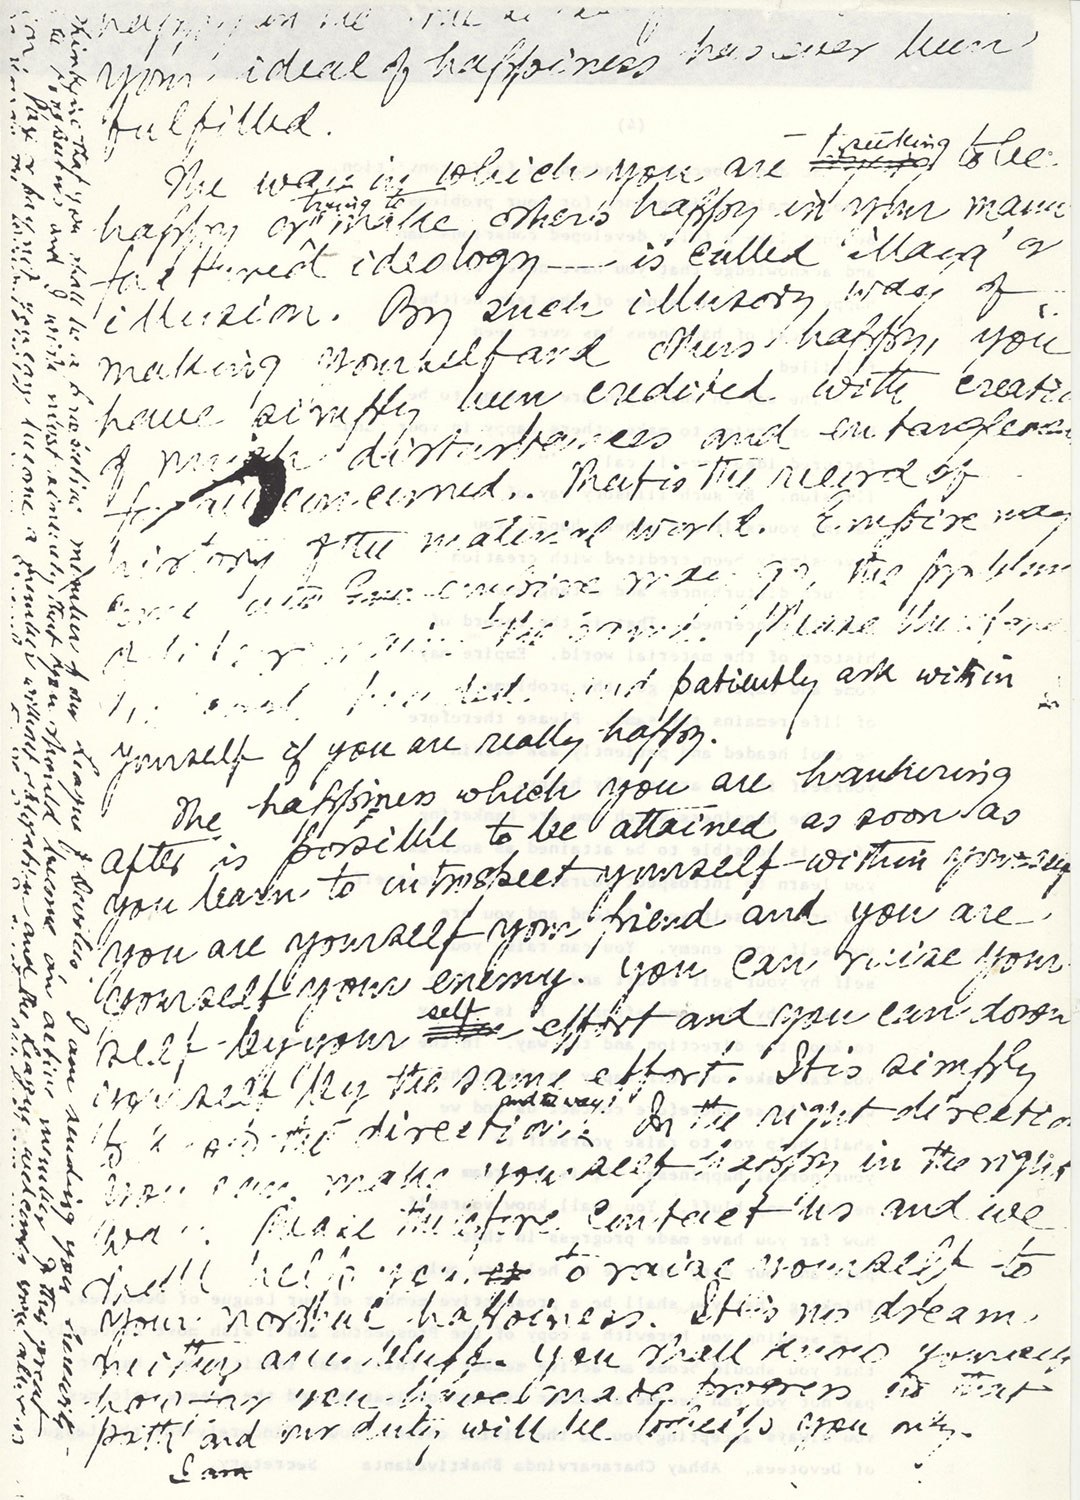 your ideal of happiness has ever been
fulfilled.
The way in which you are ~~trying~~ seeking to be
happy or trying to make others happy in your manu
factured ideology — is called 'illaya' or
illusion. By such illusory way of
making yourself and others happy, you
have simply been credited with creatio
of much disturbances and entanglemen
for all concerned.. That is the record of
history of the material world. Empire may
come and empire may go, the problem
of life remains the same. Please therefore
be cool headed and patiently ask within
yourself if you are really happy.
The happiness which you are hankering
after is possible to be attained as soon as
you learn to introspect yourself within yourself
you are yourself your friend and you are
yourself your enemy. You can raise your
self by your self effort and you can down
yourself by the same effort. It is simply
to the direction and the way. In the right directio
you can make yourself happy in the right
way. Please therefore contact us and we
shall help you to raise yourself to
your normal happiness. It is no dream
neither any bluff. You shall know yourself
how far you have made progress in that
path and our duty will be to help you only.
~~I am~~
Thinking that you shall be a prospective member of our League of Devotees I am sending you herewith
Prospectus and I wish most sincerely that you should become an active member of this great
Pay or pay not you can become a member without obligation and the League welcomes you always